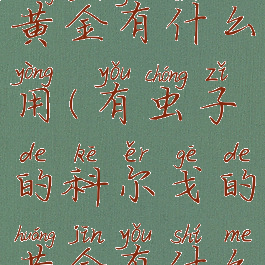 黄金有什么
yòng yǒu chóng zǐ
用(有虫子
de kē ěr gē de
的科尔戈的
huáng jīn yǒu shí me
黄金有什么